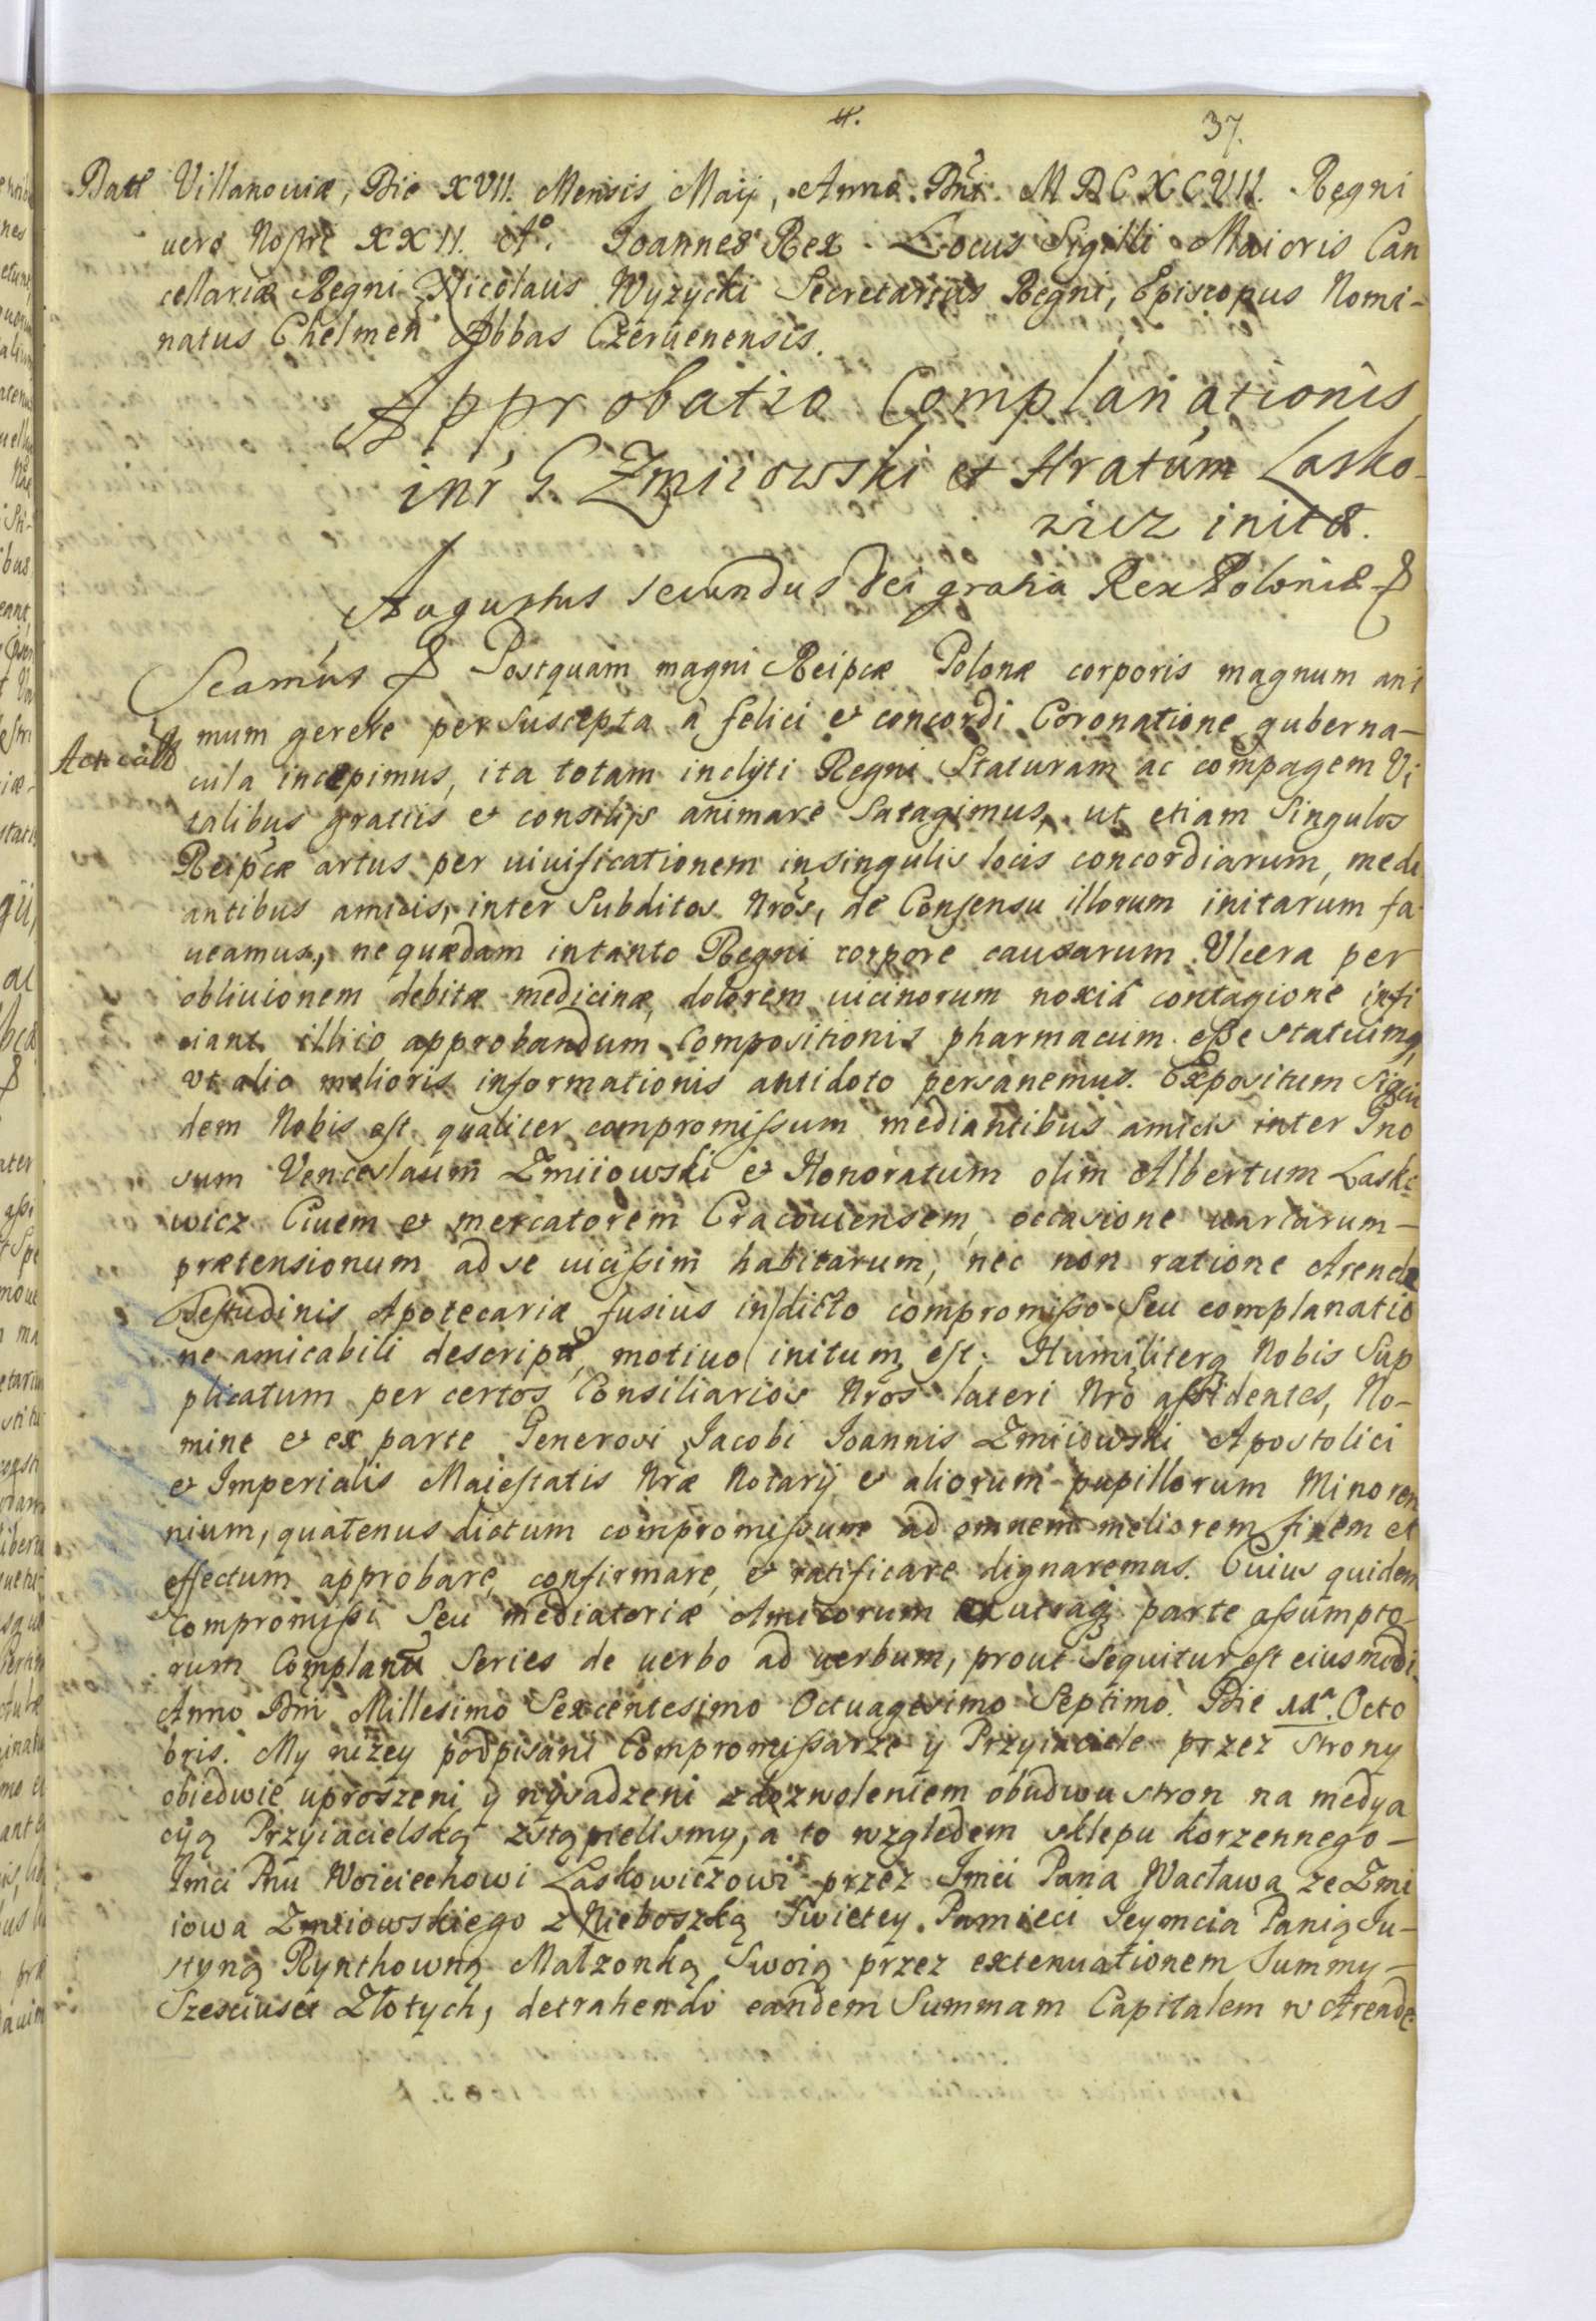 37.
Datt Villanouiæ, Die XVII. Mensis Maij, Anno Dni MDCXCVII. Regni
uero Nostri XXII. A°. Joannes Rex Locus Sigilli Maioris Can
cellariæ Regni Nicolaus Wyzycki Secretarius Regni, Episcopus Nomi-
natus Chelmen Abbas Czeruenensis.
Approbatio Complanationis
intr G Zmiiowski et Hratum Lasko-
wicz initæ.
Augustus secundus Dei gratia Rex Poloniæ
Scamus Postquam magni Reipcæ Polonæ corporis magnum ani
mum gerere per suscepta à felici et concordi Coronatione guberna-
cula incepimus, ita totam inclyti Regni Staturam ac compagem Vi
talibus gratiis et consilijs animare Satagimus, ut etiam Singulos
Reipcæ artus per uiuificationem in singulis locis concordiarum, medi
antibus amicis, inter Subditos Nros, de Consensu illorum initarum fa
ueamus, ne quædam in tanto Regni corpore causarum Ulcera per
obliuionem debitæ medicinæ, dolorem uicinorum noxiâ contagione infi
ciant illico approbandum Compositionis pharmacum eße statuimq,
vt alio melioris informationis antidoto persanemus. Expositum Siqui
dem Nobis est qualiter compromißum mediantibus amicis inter Gno
sum Venceslaum Zmiiowski et Honoratum olim Albertum Lasko
wicz Ciuem et mercatorem Cracouiensem, occasione uariarum
prætensionum ad se uicißim habitarum, nec non ratione Arendæ
Testudinis Apotecariæ fusius in dicto compromißo Seu complanatio
ne amicabili descriptæ, motiuo initum est; Humiliterq Nobis Sup
plicatum per certos Consiliarios Nros lateri Nro aßidentes, No-
mine et ex parte Generosi Jacobi Joannis Zmiiowski Apostolici
et Imperialis Maiestatis Nræ Notarij et aliorum pupillorum Minoren
nium, quatenus dictum compromißum ad omnem meliorem finem et
effectum approbare, confirmare, et ratificare dignaremus. Cuius quidem
Compromißi Seu mediatoriæ Amicorum ex utraq parte aßumpto-
rum Complanæ Series de uerbo ad uerbum, prout Sequitur est eiusmodi.
Anno Dni Millesimo Sexcentesimo Octuagesimo Septimo. Die 11ª. Octo
bris. My nizey podpisani Compromißarze y Przyiaciele przez Strony
obiedwie uproszeni y wysadzeni z dozwoleniem obudwu stron na medya
cyą Przyiacielską zstąpielismy, a to względem sklepu korzennego-
Jmci Pnu Woiciechowi Laskowiczowi przez Jmci Pana Wacława ze Zmi
iowa Zmiiowskiego z Nieboszką Swietey Pamieci Jeymcia Panią Ju-
styną Rynthowną Małzonką Swoią przez extenuationem Summy-
Szesciuset Złotych, detrahendo eandem Summam Capitalem w Arende